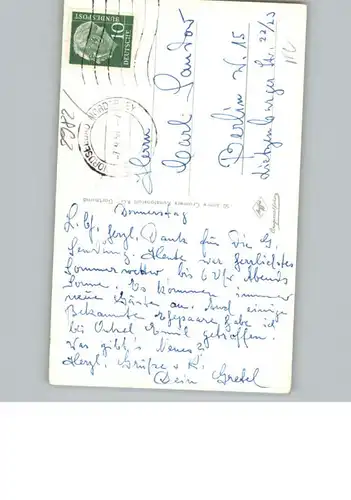 Donnerstag
L. Bf, herzl. Dank für Die G.
Sendung. Heute war herrlichstes
Sommerwetter bis 6 Uhr Abends
Sonne. Es kommen immer
neue Gäste an. Auch einige
Bekannte Ehepaare habe ich
bis Onkel Emil getroffen.
Was gibt's Neues?
Herzl. Grüße + K.
Dein Gretel
Herrn
Carl Sandow
Berlin W. 15
Lietzenburger Str. 22/23
10
DEUTSCHE
BUNDESPOST
Cramers Kunstanstalt K.G. Dortmund